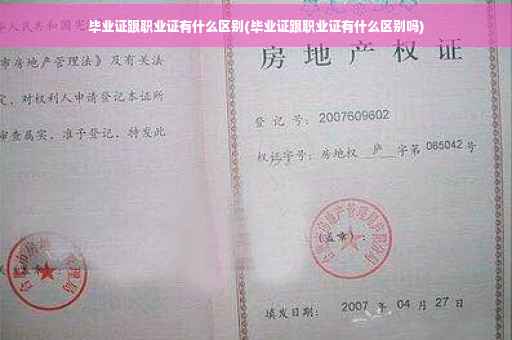 毕业证跟职业证有什么区别(毕业证跟职业证有什么区别吗)
华人民共和国宪
市房地产管理法》及有关法
定，对权利人申请登记本证所
审查属实，准予登记，特发此
房地产权证
登记号：2007609602
权证字号：房地权 庐 字第 085042 号
(盖章)：
填发日期：2007 年 04 月 27 日